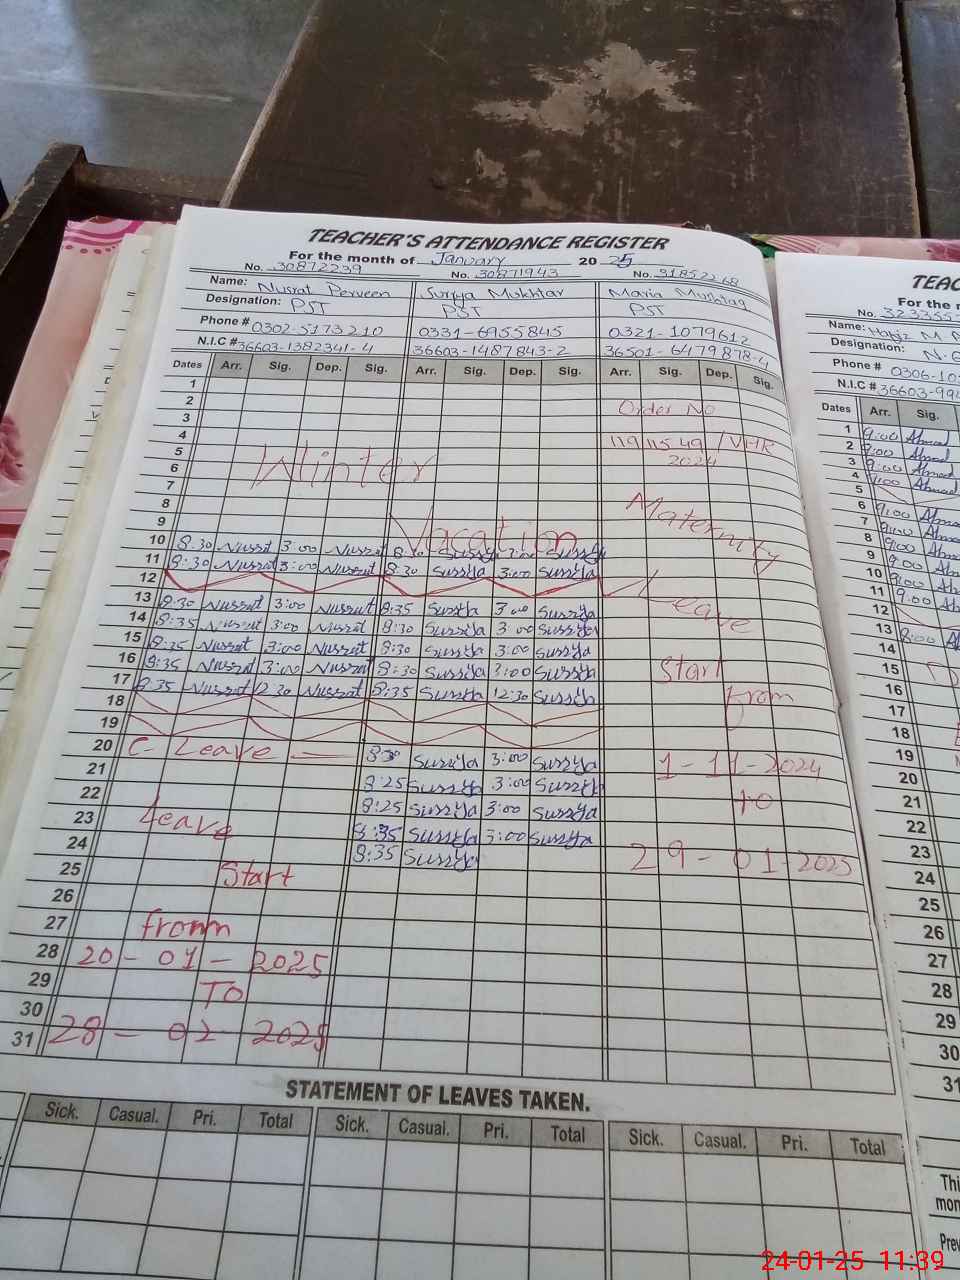 TEACHER'S ATTENDANCE REGISTER
For the month of January 2025
No. 30872239 No. 30871943 No. 31852268
Name: Nusrat Perveen Surrya Mukhtar Maria Mushtaq
Designation: PST PST PST
Phone # 0302-5173210 0331-6955845 0321-1079612
N.I.C # 36603-1382341-4 36603-1487843-2 36501-6479878-4
Dates Arr. Sig. Dep. Sig. Arr. Sig. Dep. Sig. Arr. Sig. Dep. Sig.
1
2 Order No
3
4 119 11549 /VHR
5 Winter 2024
6
7 Maternity
8
9 Vacation
10 8:30 Nusrat 3:00 Nusrat 8:30 Surrya 3:00 Surrya
11 8:30 Nusrat 3:00 Nusrat 8:30 Surrya 3:00 Surrya
12 Leave
13 8:30 Nusrat 3:00 Nusrat 8:35 Surrya 3:00 Surrya
14 8:35 Nusrat 3:00 Nusrat 8:30 Surrya 3:00 Surrya
15 8:35 Nusrat 3:00 Nusrat 8:30 Surrya 3:00 Surrya
16 8:35 Nusrat 3:00 Nusrat 8:30 Surrya 3:00 Surrya Start
17 8:35 Nusrat 12:30 Nusrat 8:35 Surrya 12:30 Surrya from
18
19
20 C- Leave 8:30 Surrya 3:00 Surrya 1-11-2024
21 8:25 Surrya 3:00 Surrya to
22 8:25 Surrya 3:00 Surrya
23 Leave 8:35 Surrya 3:00 Surrya
24 8:35 Surrya 29-01-2025
25 Start
26
27 from
28 20-01-2025
29 TO
30
31 28-02-2025
STATEMENT OF LEAVES TAKEN.
Sick. Casual. Pri. Total Sick. Casual. Pri. Total Sick. Casual. Pri. Total
TEAC
For the m
No. 323355
Name: Hafiz M
Designation: N.
Phone # 0306-10
N.I.C # 36603-994
Dates Arr. Sig.
1 9:00 Ahmad
2 9:00 Ahmad
3 9:00 Ahmad
4 9:00 Ahmad
5
6 9:00 Ahmad
7 9:00 Ahmad
8 9:00 Ahmad
9 9:00 Ahmad
10 9:00 Ahmad
11 9:00 Ahmad
12
13 8:00 Ahmad
14
15
16
17
18
19
20
21
22
23
24
25
26
27
28
29
30
31
Thi
mon
Prev
24-01-25 11:39